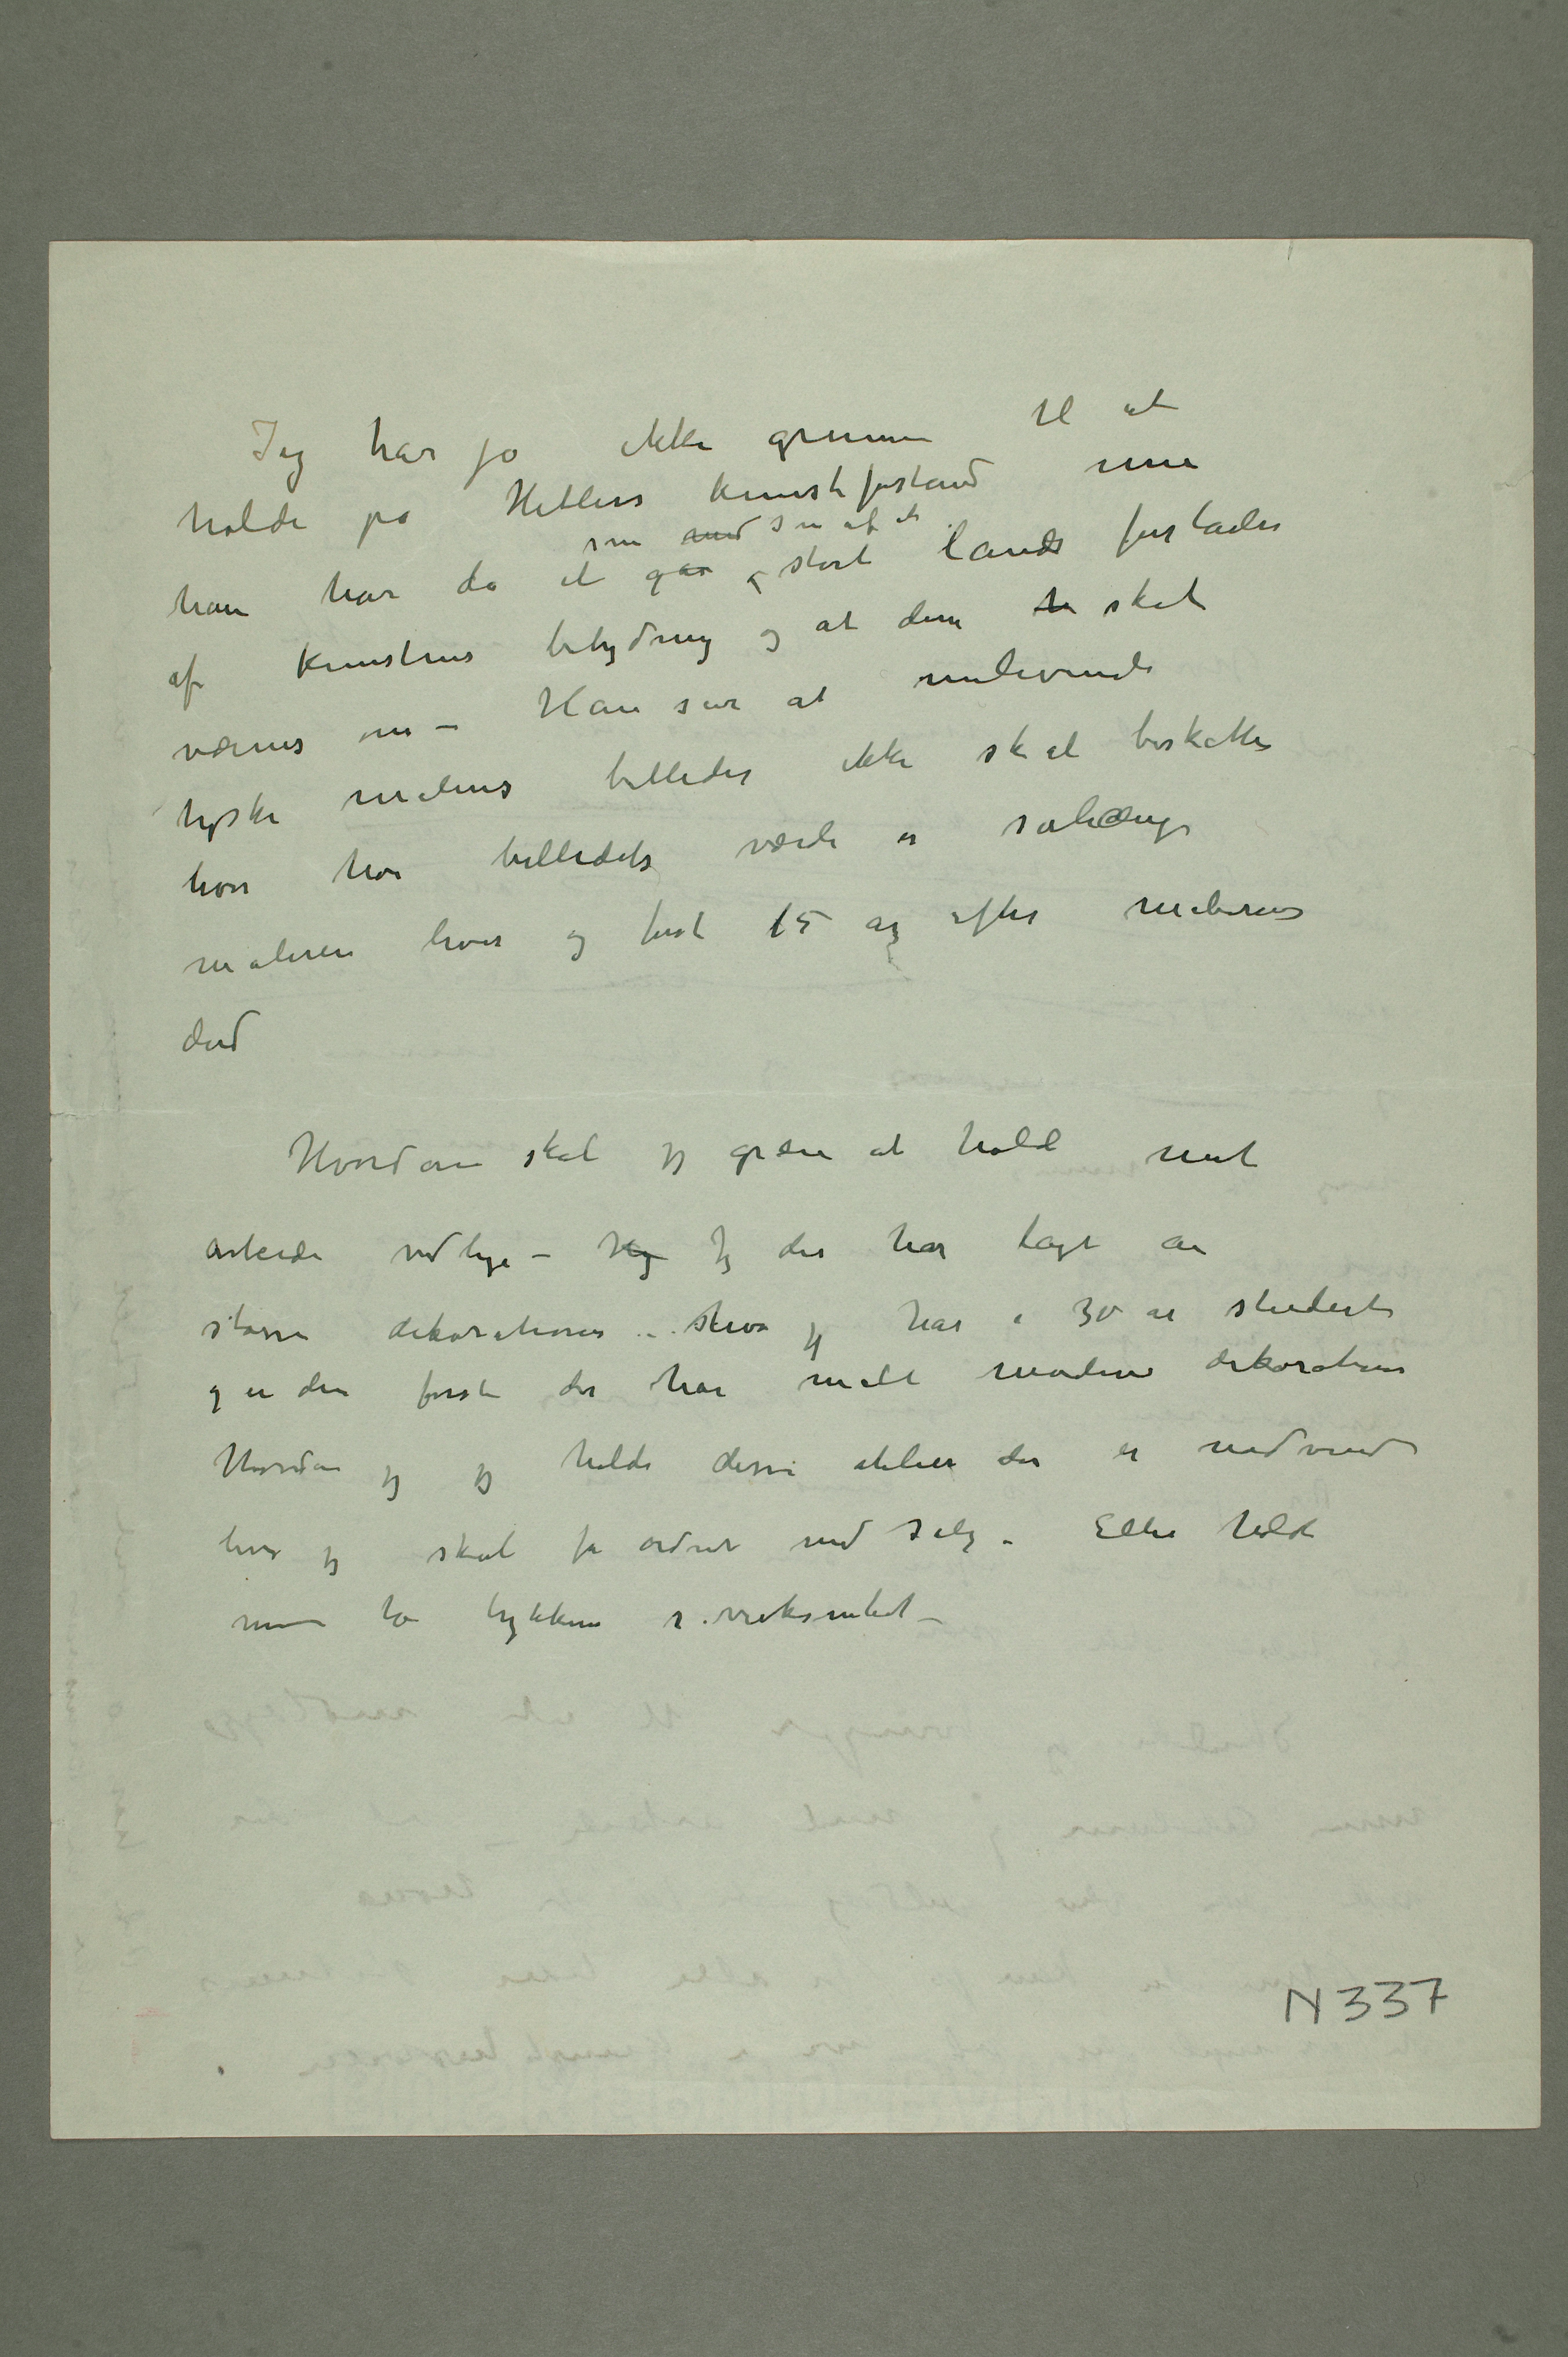 Jeg har jo ikke grunn til at
holde på Hitlers kunstforstand men
som med den af et
han har da et gås stort lands forståelse
af kunstens betydning og at den skal
værnes om – Han sier at nulevende
tyske malerens billeder ikke skal beskattes
hvor hva billedets værdi er sålænge
maleren lever og først 15 år efter malerens
død
Hvordan skal jeg greie at holde mit
arbeide vedlige – Jeg der har lagt an
større dekorationer – hva jeg har i 30 år studert
og er den første der har malt moderne dekorationer
Hvordan jeg jeg holde disse atelier der er nødvend
hvis jeg skal få ordnet med salg – Eller holde
min to trykkeri i virksomhet –
N 337